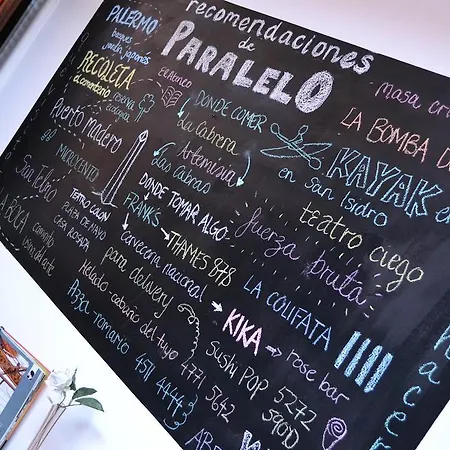 recomendaciones
de
PARALELO
PALERMO
bosques
jardín japonés
RECOLETA
el cementerio
reserva
ecológica
EL ATENEO
Puerto Madero
MICROCENTRO
San Telmo
TEATRO COLON
PLAZA DE MAYO
CASA ROSADA
LA BOCA
Caminito
DONDE COMER
La Cabrera
Artemisia
las cabras
DONDE TOMAR ALGO
FRANK'S
THAMES 878
Cervecería nacional
para delivery
Helado cabaña del tuyo
Pizza-romario 4511 4444
4771 5642
Sushi Pop 5272
5900
KIKA
rose bar
LA COLIFATA
masa cr
LA BOMBA D
KAYAK en
en
San Isidro
teatro ciego
fuerza bruta
hacer